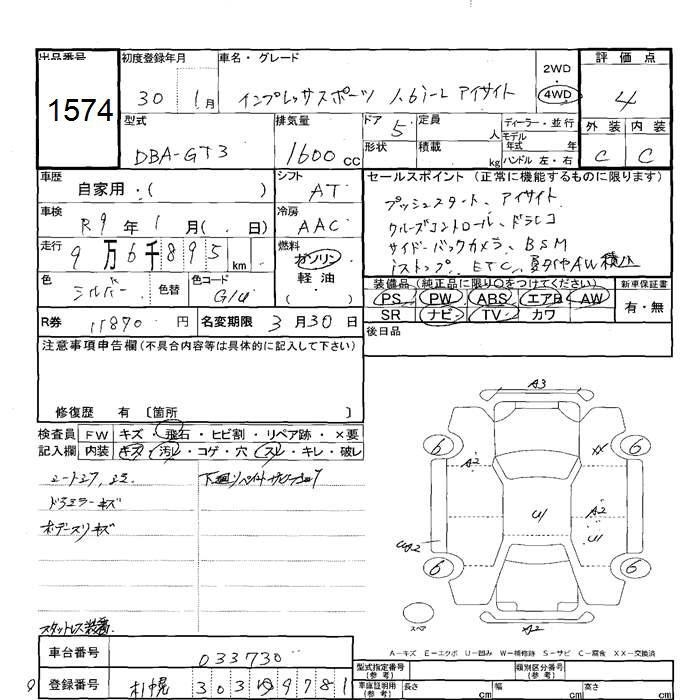 出品番号 初度登録年月 車名・グレード 評価点
1574 30 1月 インプレッサスポーツ 1.6i-L アイサイト 2WD 4WD 4
型式 排気量 ドア 定員 ディーラー・並行 外装 内装
DBA-GT3 1600cc 5 人 モデル年式 年 C C
形状 積載 kg ハンドル 左・右
車歴 シフト セールスポイント (正常に機能するものに限ります)
自家用・( ) AT プッシュスタート、アイサイト
車検 冷房 クルーズコントロール、ドラレコ
R9年1月(.日) AAC サイド・バックカメラ、BSM
走行 9万6千895km 燃料 ガソリン iストップ、ETC、夏タイヤAW積込
色 シルバー 色替 色コード G1U 軽油
装備品 (純正品に限り○をつけてください) 新車保証書
PS PW ABS エアB AW 有・無
SR ナビ TV カワ
R券 11870円 名変期限 3月30日
後日品
注意事項申告欄(不具合内容等は具体的に記入して下さい)
修復歴 有 〔箇所 〕
検査員 FW キズ・飛石・ヒビ割・リペア跡・×要
記入欄 内装 キズ・汚レ・コゲ・穴・スレ・キレ・破レ
ドアミラーキズ
ボデースリキズ
スタットレス装着
A3
6 6
A2 XX
U/ A2
U/
UA2
6 6
スペア A2
A-キズ E-エクボ U-凹み W-補修跡 S-サビ C-腐食 XX-交換済
車台番号 033730
登録番号 札幌 303 ゆ 9781
型式指定番号(参考) 類別区分番号(参考)
車庫証明用(参考) 長さ cm 幅 cm 高さ cm